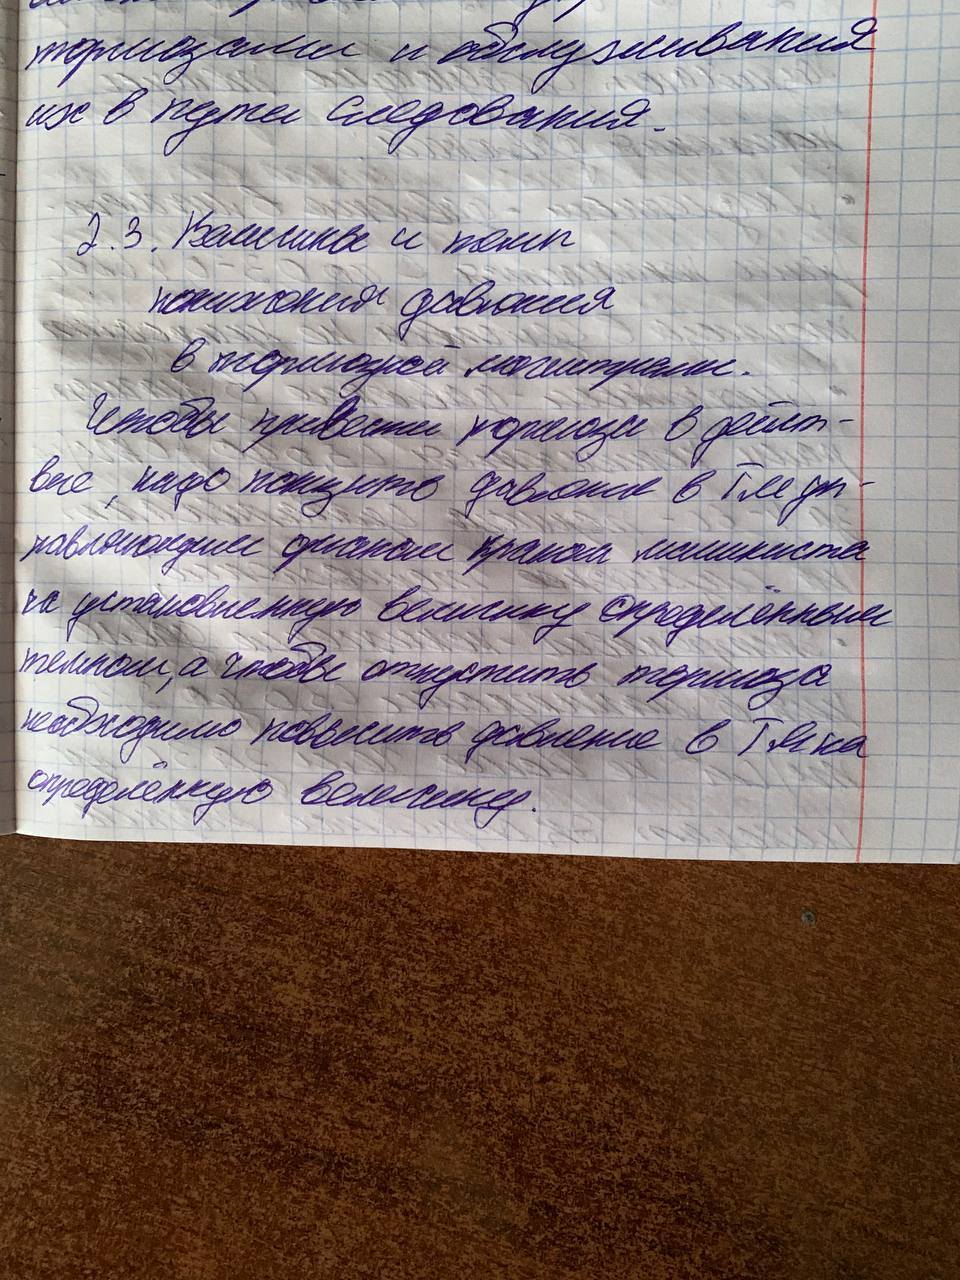 тормозами и обслуживания
их в пути следования.
2.3. Величина и темп
понижения давления
в тормозной магистрали.
Чтобы привести тормоза в дейст-
вие, надо понизить давление в ТМ уп-
равляющим органом краном машиниста
на установленную величину определённым
темпом, а чтобы отпустить тормоза
необходимо повысить давление в ТМ на
определённую величину.